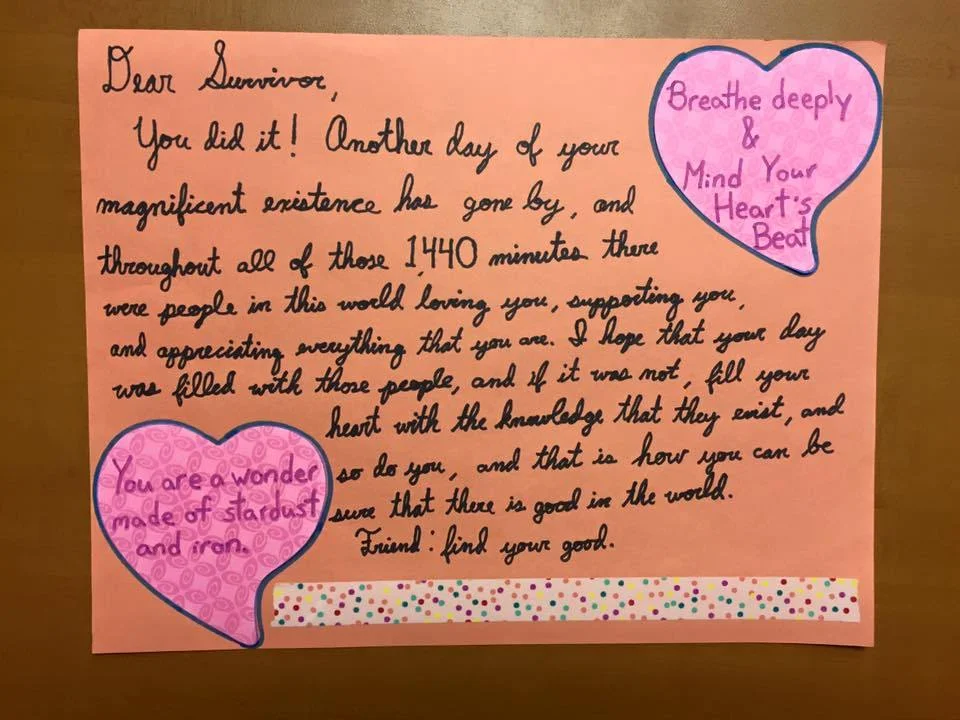 Dear Survivor,
You did it! Another day of your
magnificent existence has gone by, and
throughout all of those 1,440 minutes there
were people in this world loving you, supporting you,
and appreciating everything that you are. I hope that your day
was filled with those people, and if it was not, fill your
heart with the knowledge that they exist, and
so do you, and that is how you can be
sure that there is good in the world.
Friend: find your good.
Breathe deeply
&
Mind Your
Heart's
Beat
You are a wonder
made of stardust
and iron.